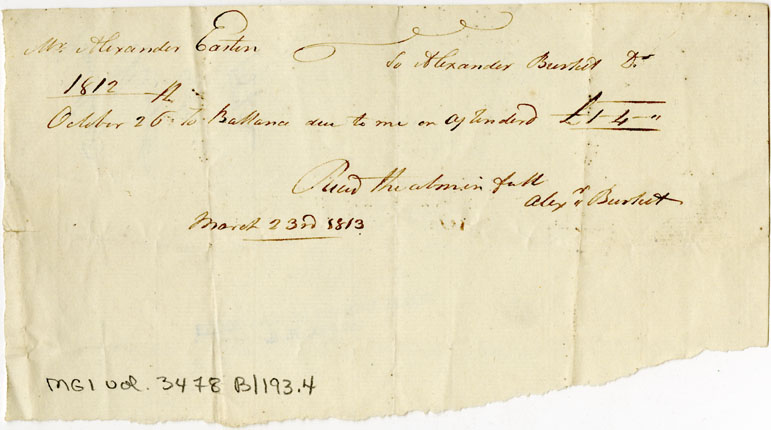 Mr Alexander Easton
To Alexander Burket Dr
1812
October 26 to Ballance due to me on £1-4-"
Recd the above in full
Alexr Burket
March 23rd 1813
MG1 vol. 3478 B/193.4